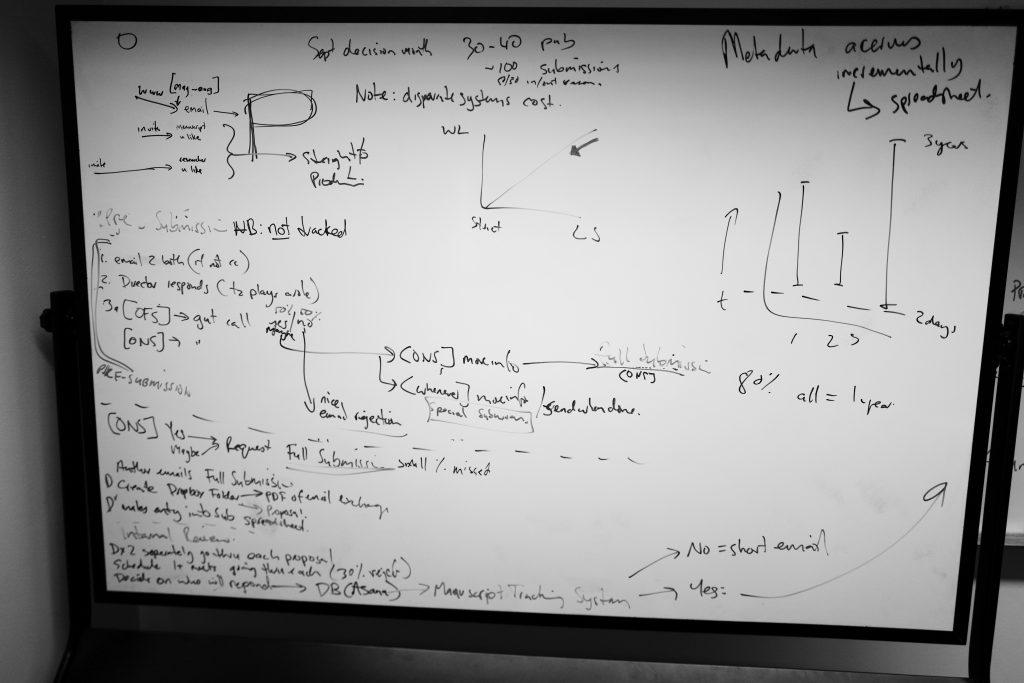 Sept decision month 30-40 pub
~100 submissions
50/50 in/out
Note: disparate systems cost.
Metadata accrues
incrementally
spreadsheet.
www [mag-org]
email
invite manuscript
u like
invite researcher
u like
P
Straight to
Production
WL
Start
LS
3 years
t
2 days
1 2 3
80% all = 1 year.
Pre-Submission NB: not tracked
1. email 2 both (if not cc)
2. Director responds (t2 plays a role)
3a [OFS] → gut call
50% 50%
yes/no
maybe
[ONS] → "
PRE-SUBMISSION
[ONS] more info → Full Submission
[ONS]
[whenever] more info / send when done.
Special Submission.
nice
email rejection
[ONS] Yes
Maybe
Request Full Submission small % missed
Author emails Full Submission
D Create Dropbox Folder → PDF of email exchange
→ Proposal.
D makes entry into sub spreadsheet.
Internal Review:
Dx2 separately go thru each proposal
Schedule 1+ meets going thru each (30% reject)
Decide on who will respond → DB (Asana) → Manuscript Tracking System
No = short email
Yes: